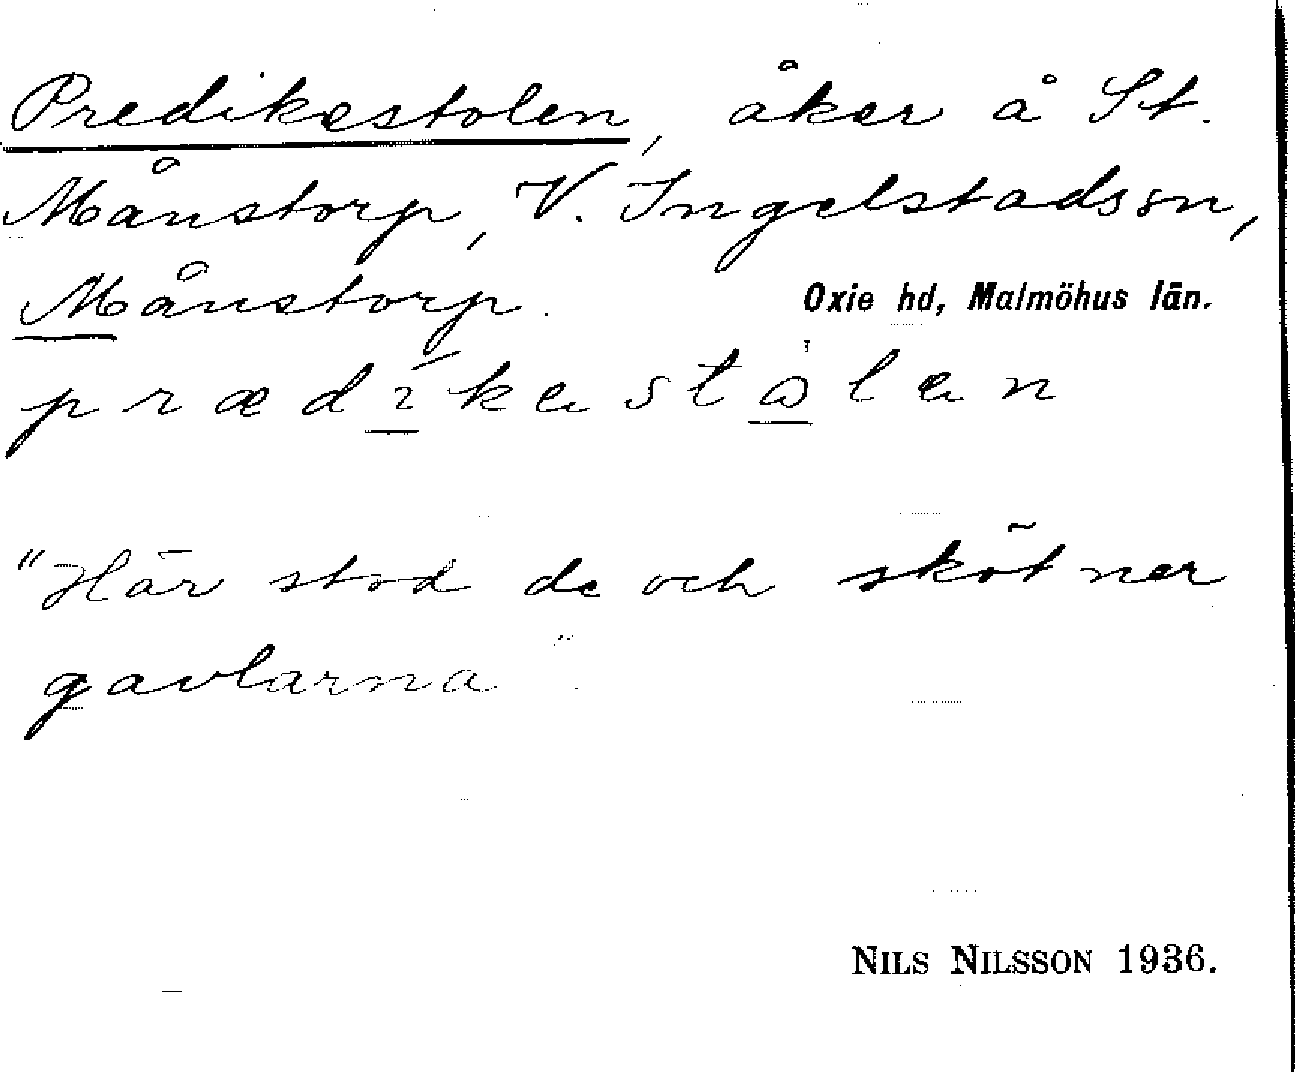 Predikestolen, åker å St.
Månstorp, V. Ingelstads sn,
Månstorp. Oxie hd, Malmöhus län.
prædikestålen
"Här stod de och sköt ner
gavlarna".
NILS NILSSON 1936.